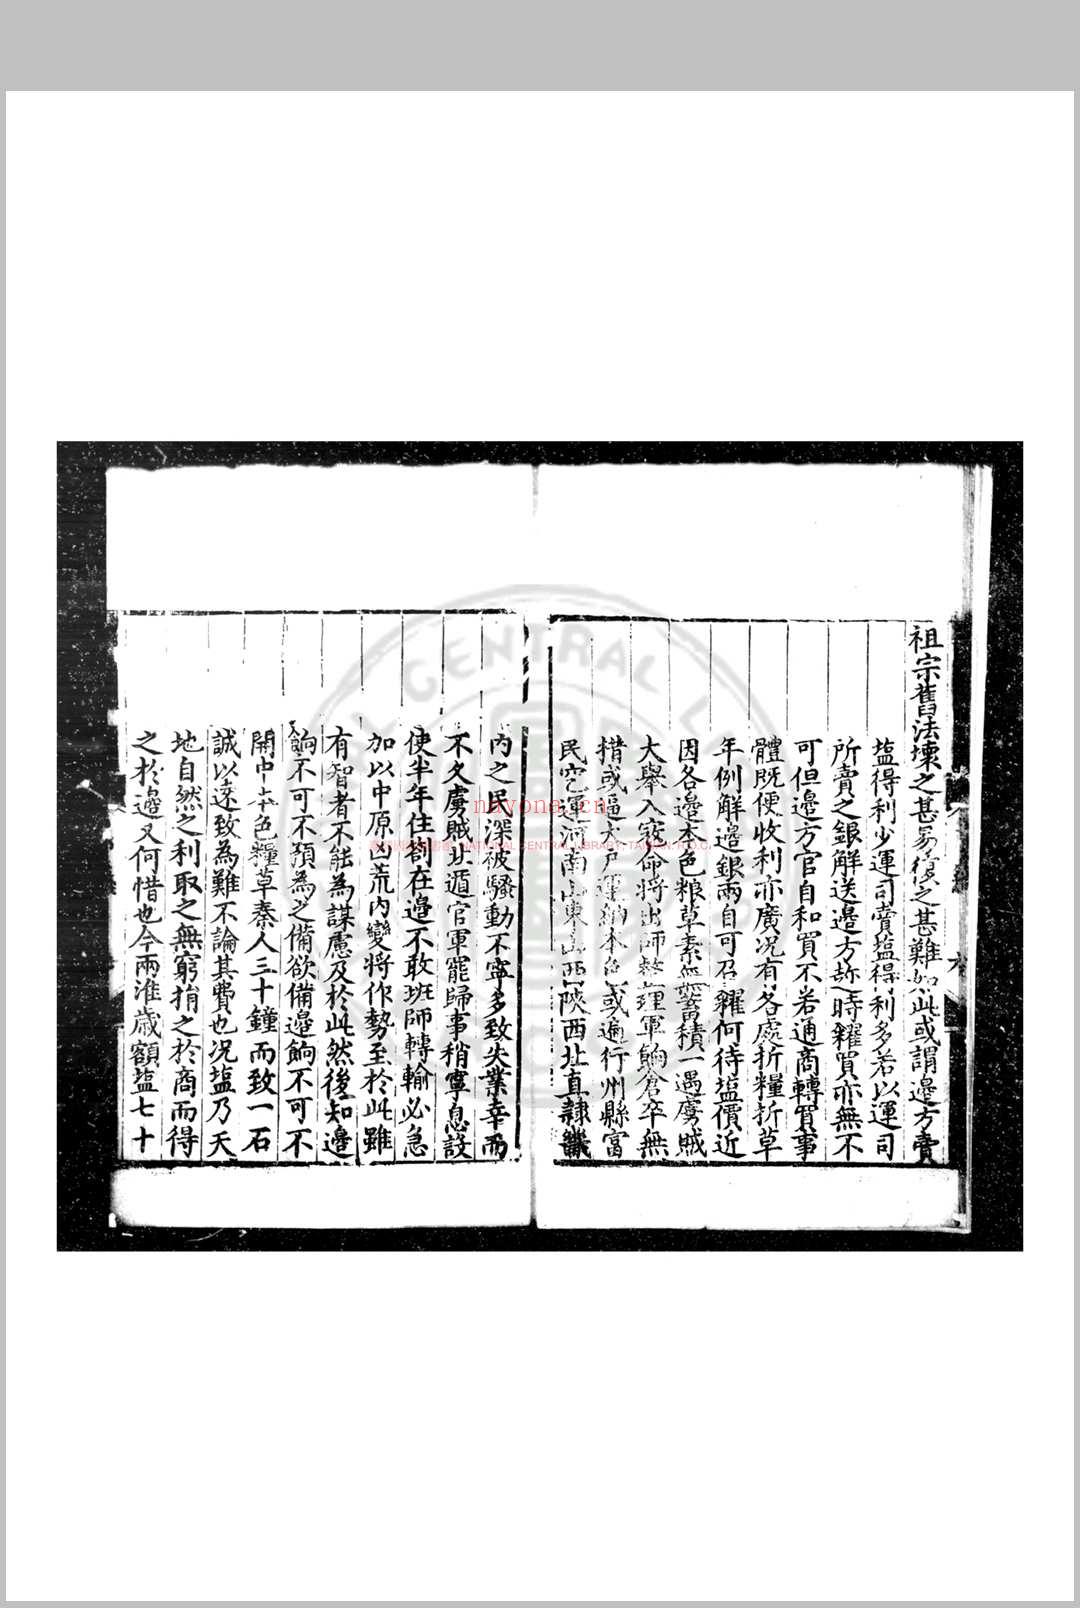 祖宗舊法壞之甚易復之甚難如此或謂邊方賣
塩得利少運司賣塩得利多若以運司
所賣之銀解送邊方趂時糴買亦無不
可但邊方官自和買不若通商轉買事
體既便收利亦廣况有各處折糧折草
年例解邊銀兩自可召糴何待塩價近
因各邊本色粮草素無蓄積一遇虜賊
大舉入寇命將出師整理軍餉倉卒無
措或逼大戶運納本色或遍行州縣富
民空運河南山東山西陝西北直隷
內之民深被騷動不寧多致失業幸而
不久虜賊北遁官軍罷歸事稍寧息設
使半年住劄在邊不敢班師轉輸必急
加以中原凶荒內變將作勢至於此雖
有智者不能為謀慮及於此然後知邊
餉不可不預為之備欲備邊餉不可不
開中本色糧草秦人三十鐘而致一石
誠以遠致為難不論其費也况塩乃天
地自然之利取之無窮捐之於商而得
之於邊又何惜也今兩淮歲額塩七十
NATIONAL CENTRAL LIBRARY, TAIWAN, R.O.C.
nayona.cn